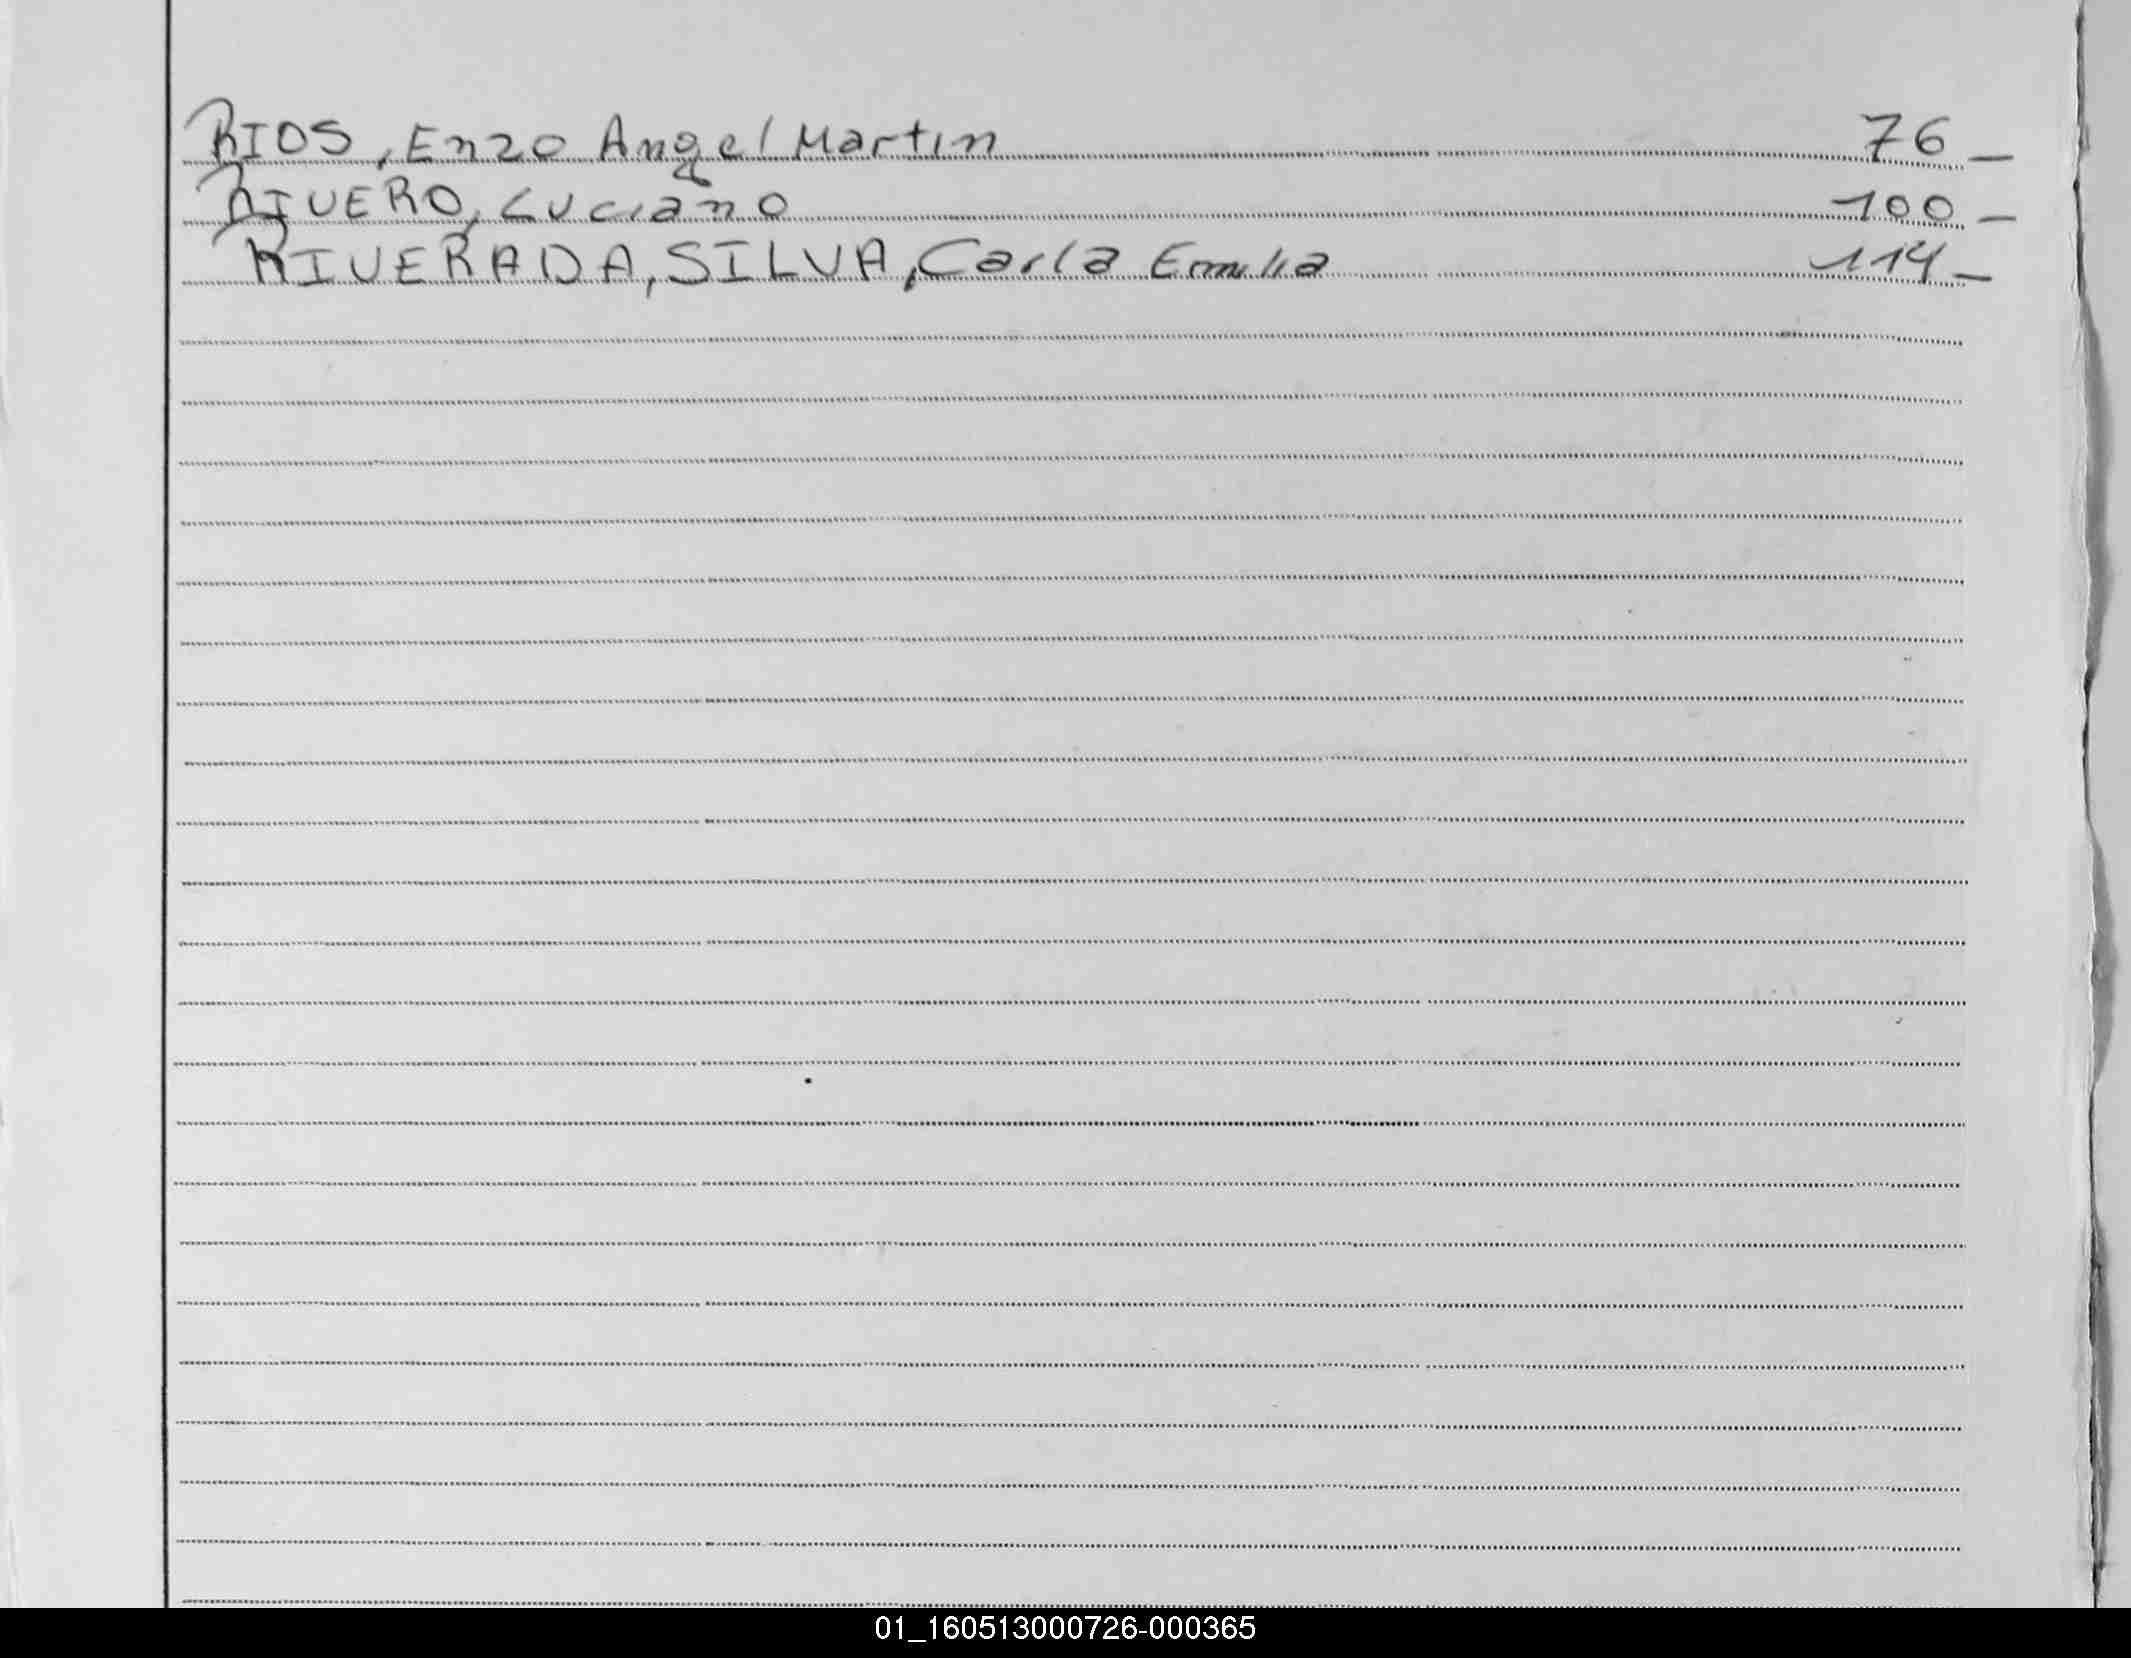 RIOS, Enzo Angel Martin 76 _
RIVERO, Luciano 100 _
RIVERADA, SILVA, Carla Emilia 114 _
01_160513000726-000365